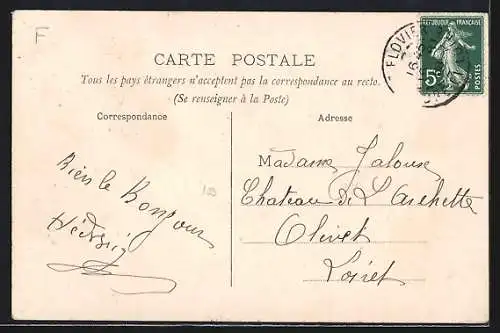 F
CARTE POSTALE
Tous les pays étrangers n'acceptent pas la correspondance au recto.
(Se renseigner à la Poste)
Correspondance
Bien le Bonjour
Adresse
Madame Jalouse
Chateau de L'Archette
Olivet
Loiret
REPUBLIQUE FRANÇAISE
5c
POSTES